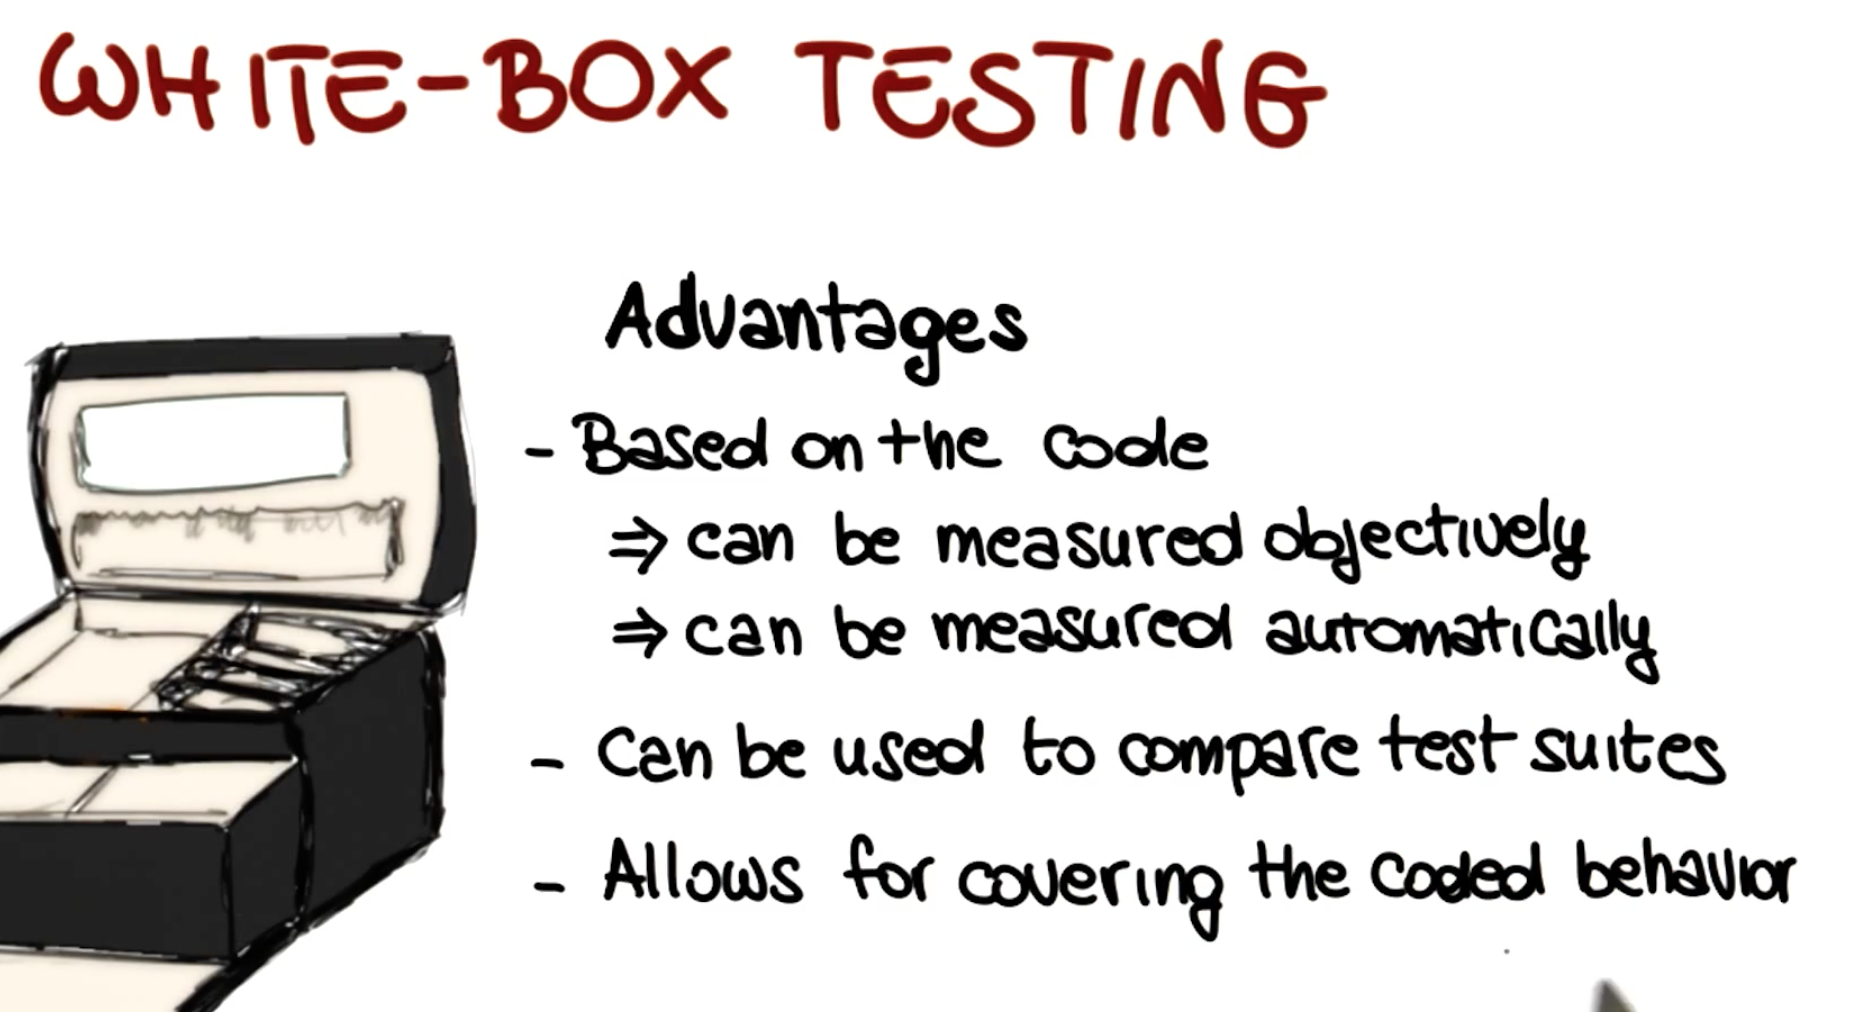 WHITE-BOX TESTING
Advantages
- Based on the code
⇒ can be measured objectively
⇒ can be measured automatically
- Can be used to compare test suites
- Allows for covering the coded behavior